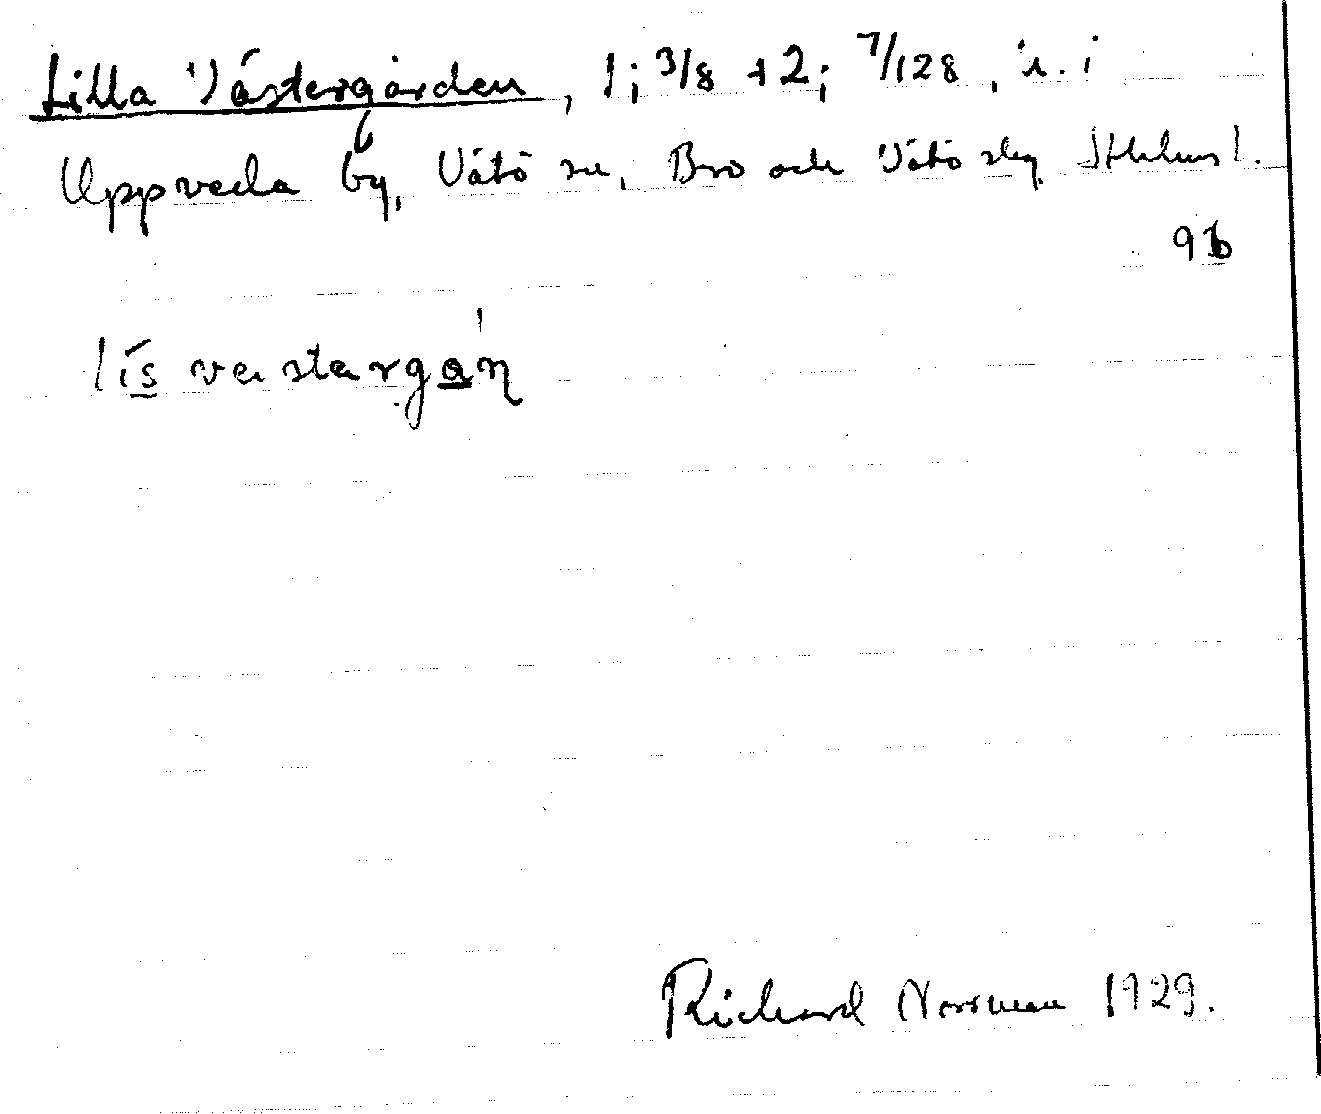 Lilla Västergården, 1; 3/8 + 2; 7/128, i. i
Uppveda by, Vätö sn, Bro och Vätö skg Sthlms l.
9b
Richard Norrman 1929.